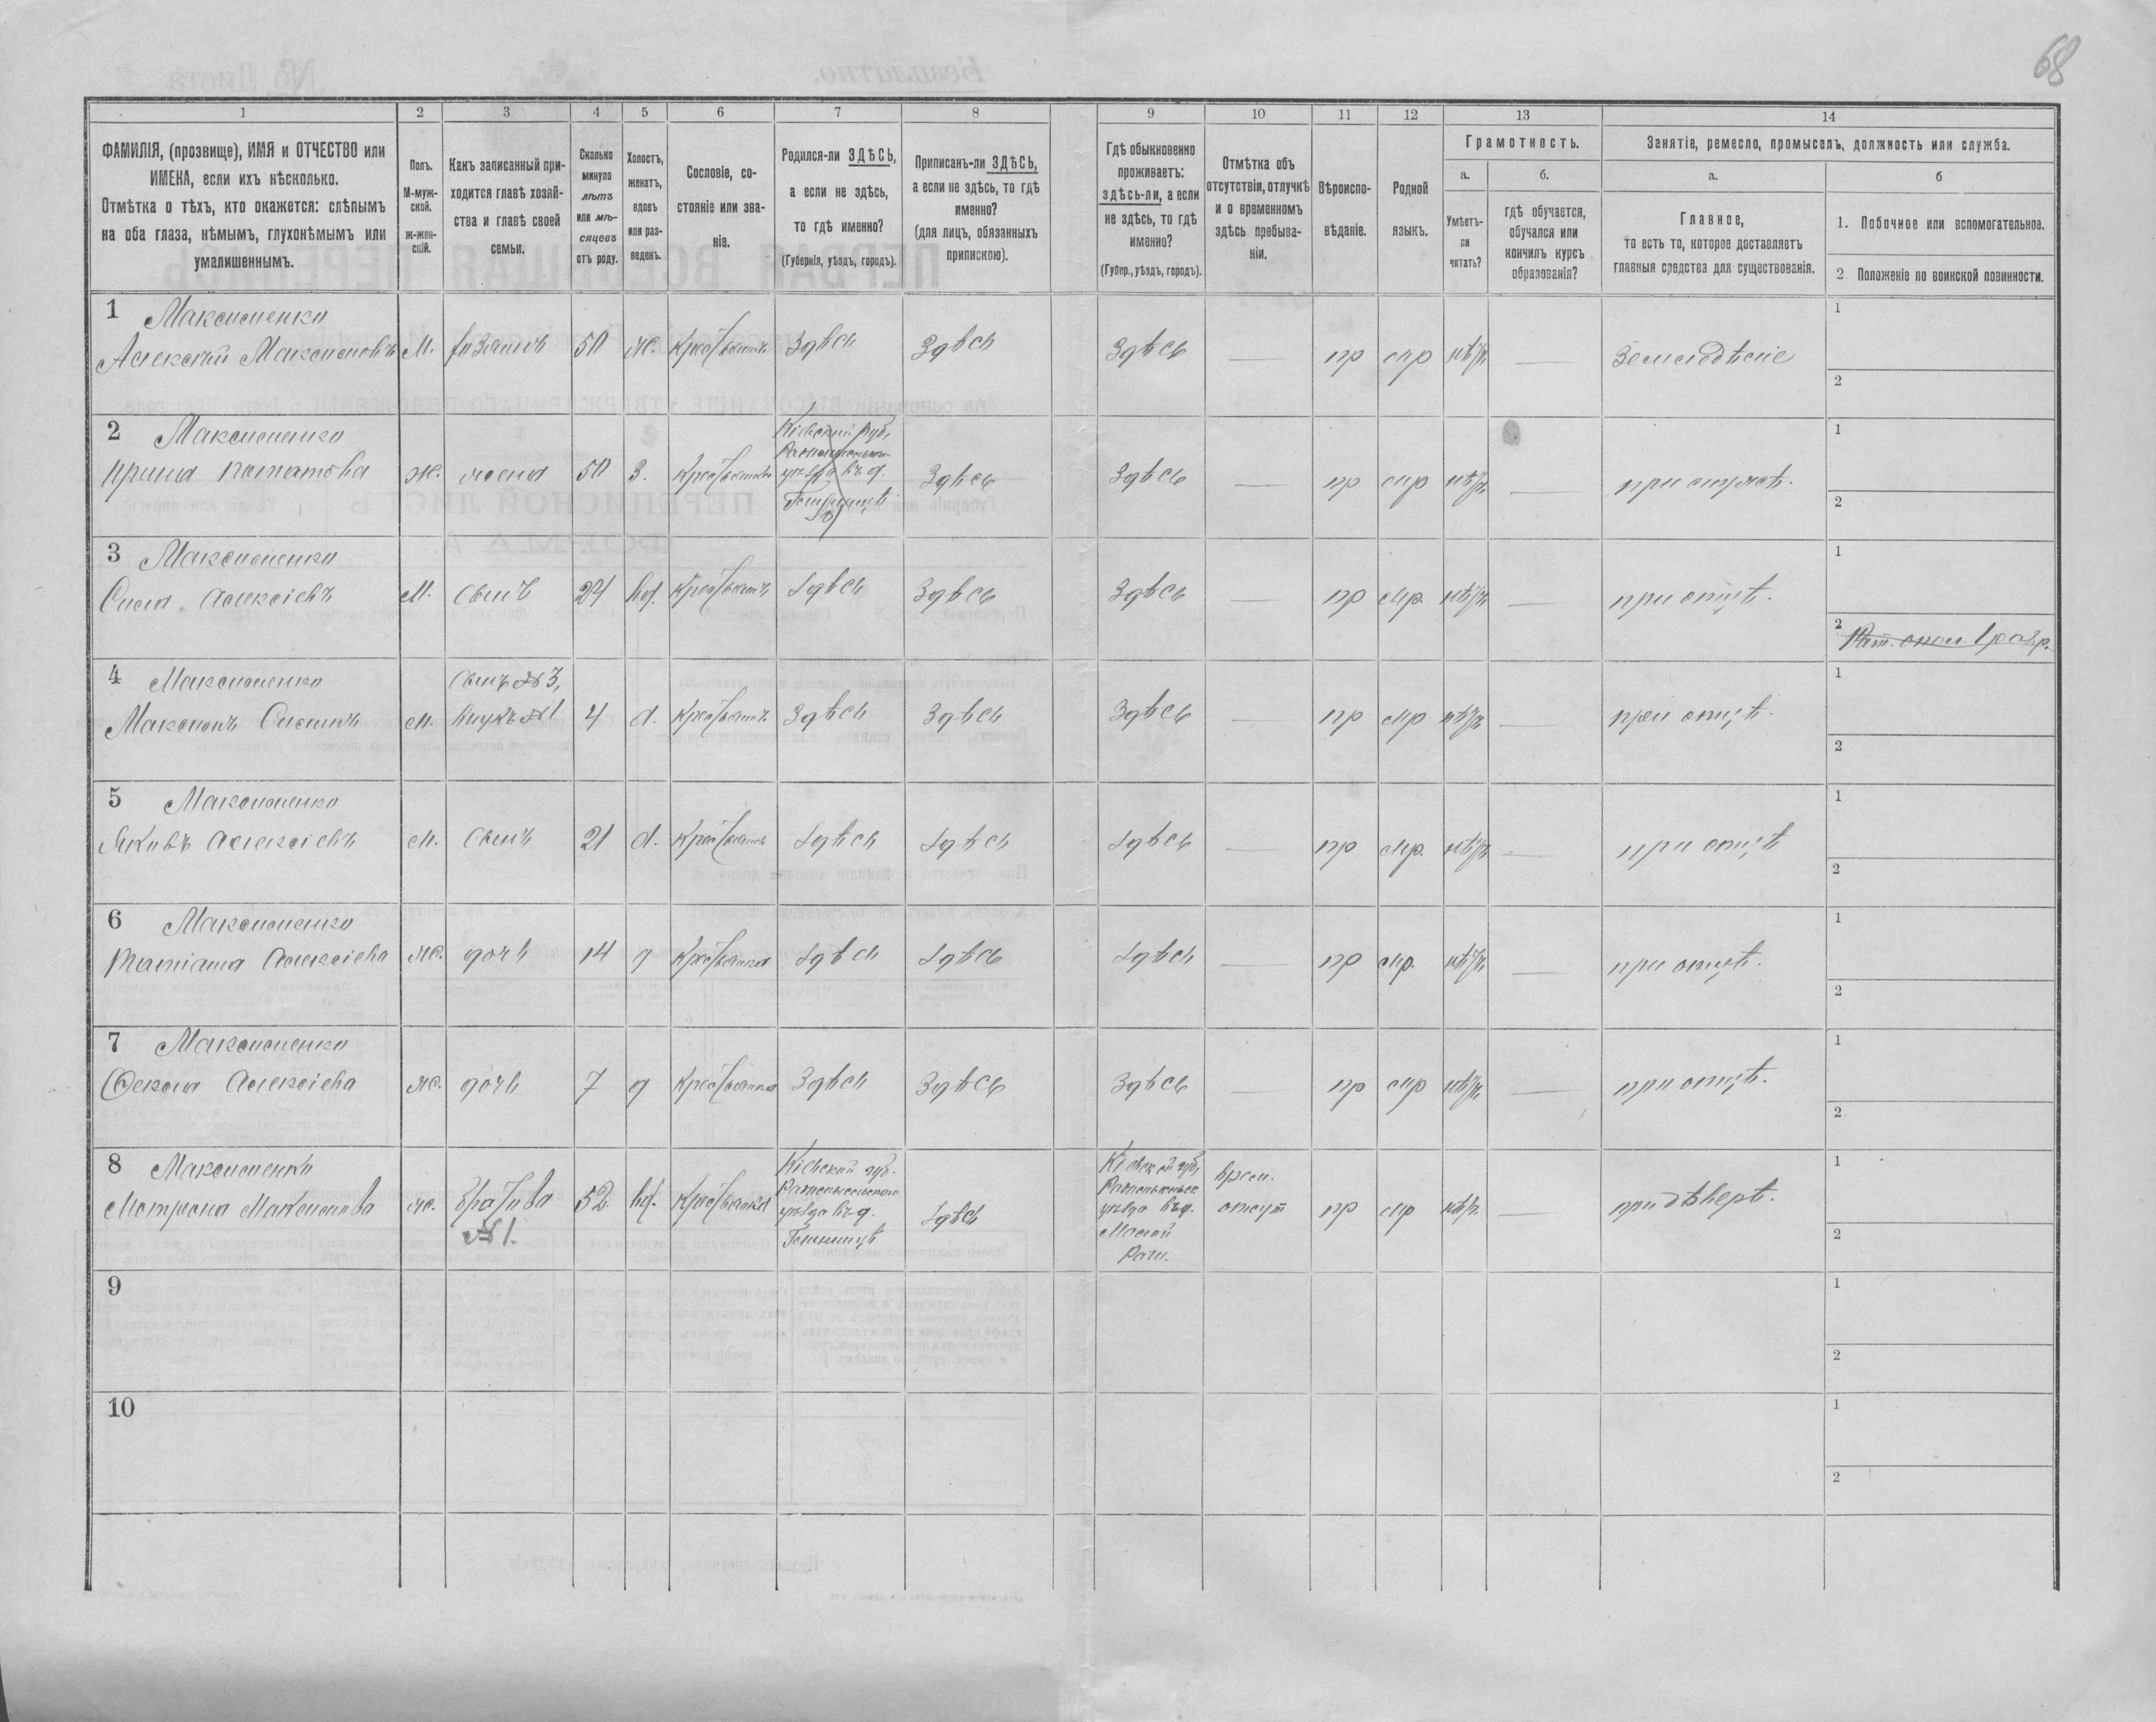 68
1 2 3 4 5 6 7 8 9 10 11 12 13 14
ФАМИЛІЯ, (прозвище), ИМЯ и ОТЧЕСТВО или
ИМЕНА, если ихъ нѣсколько.
Отмѣтка о тѣхъ, кто окажется: слѣпымъ
на оба глаза, нѣмымъ, глухонѣмымъ или
умалишеннымъ.
Полъ.
М-муж-
ской.
ж-жен-
скій.
Какъ записанный при-
ходится главѣ хозяй-
ства и главѣ своей
семьи.
Сколько
минуло
лѣтъ
или мѣ-
сяцевъ
отъ роду.
Холостъ,
женатъ,
вдовъ
или раз-
веденъ.
Сословіе, со-
стояніе или зва-
ніе.
Родился-ли ЗДѢСЬ,
а если не здѣсь,
то гдѣ именно?
(Губернія, уѣздъ, городъ).
Приписанъ-ли ЗДѢСЬ,
а если не здѣсь, то гдѣ
именно?
(для лицъ, обязанныхъ
припискою).
Гдѣ обыкновенно
проживаетъ:
здѣсь-ли, а если
не здѣсь, то гдѣ
именно?
(Губер., уѣздъ, городъ).
Отмѣтка объ
отсутствіи, отлучкѣ
и о временномъ
здѣсь пребыва-
ніи.
Вѣроиспо-
вѣданіе.
Родной
языкъ.
Грамотность.
а.
Умѣетъ-
ли
читать?
б.
гдѣ обучается,
обучался или
кончилъ курсъ
образованія?
Занятіе, ремесло, промыселъ, должность или служба.
а.
Главное,
то есть то, которое доставляетъ
главныя средства для существованія.
б
1. Побочное или вспомогательное.
2. Положеніе по воинской повинности.
1 Максименко
Алексѣй Максимовъ М. хозяинъ 50 ж. Крестьянинъ Здѣсь Здѣсь Здѣсь — пр мр нѣтъ — Земледѣліе
1
2
2 Максименко
Ирина Потапова Ж. жена 50 з. Крестьянка
Кіевской губ,
Радомысльскаго
уѣзда въ д.
Здѣсь Здѣсь — пр мр нѣтъ — при мужѣ.
1
2
3 Максименко
М. сынъ 24 вд. Крестьянинъ Здѣсь Здѣсь Здѣсь — пр мр. нѣтъ — при отцѣ.
1
2 Рат. опол. 1 разр.
4 Максименко
Максимъ М. Сынъ №3,
внукъ №1 4 х. Крестьянинъ Здѣсь Здѣсь Здѣсь — пр мр нѣтъ — при отцѣ.
1
2
5 Максименко
Яковъ Алексіевъ М. сынъ 21 х. Крестьянинъ Здѣсь Здѣсь Здѣсь — пр мр. нѣтъ — при отцѣ
1
2
6 Максименко
Татіана Алексіева ж. дочь 14 д Крестьянка Здѣсь Здѣсь Здѣсь — пр мр. нѣтъ — при отцѣ.
1
2
7 Максименко
Ѳекла Алексіева ж. дочь 7 д Крестьянка Здѣсь Здѣсь Здѣсь — пр мр нѣтъ — при отцѣ.
1
2
8 Максименко
Мотрона Максимова ж. №1. 52 вд. Крестьянка
Кіевской губ.
Радомысльскаго
уѣзда въ д.
Здѣсь
Кіевской губ,
Радомысльск.
уѣзда въ д.
Малой
Рачи.
врем.
отсут пр мр нѣтъ —
1
2
9
1
2
10
1
2